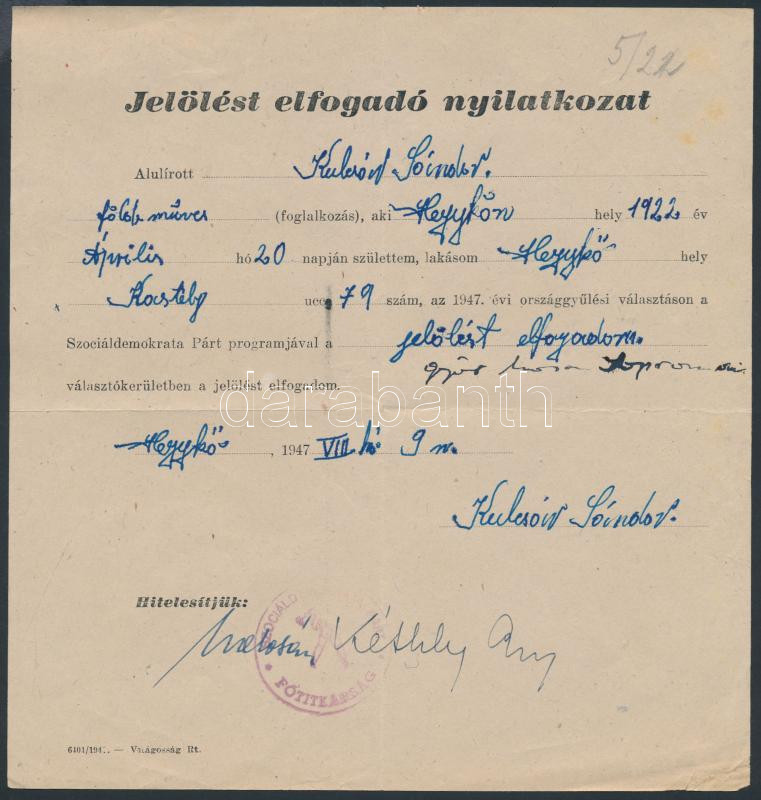 5/22
Jelölést elfogadó nyilatkozat
Alulírott Kulcsár Sándor.
földműves (foglalkozás), aki Hegykőn hely 1922 év
Április hó 20 napján születtem, lakásom Hegykő hely
ucca 79 szám, az 1947. évi országgyűlési választáson a
Szociáldemokrata Párt programjával a jelölést elfogadom.
győr Sopron
választókerületben a jelölést elfogadom.
darabanth
Hegykő , 1947 VIII hó 9 n.
Kulcsár Sándor.
Hitelesítjük:
SZOCIÁLD
FŐTITKÁRSÁG
Kéthly
— Világosság Rt.